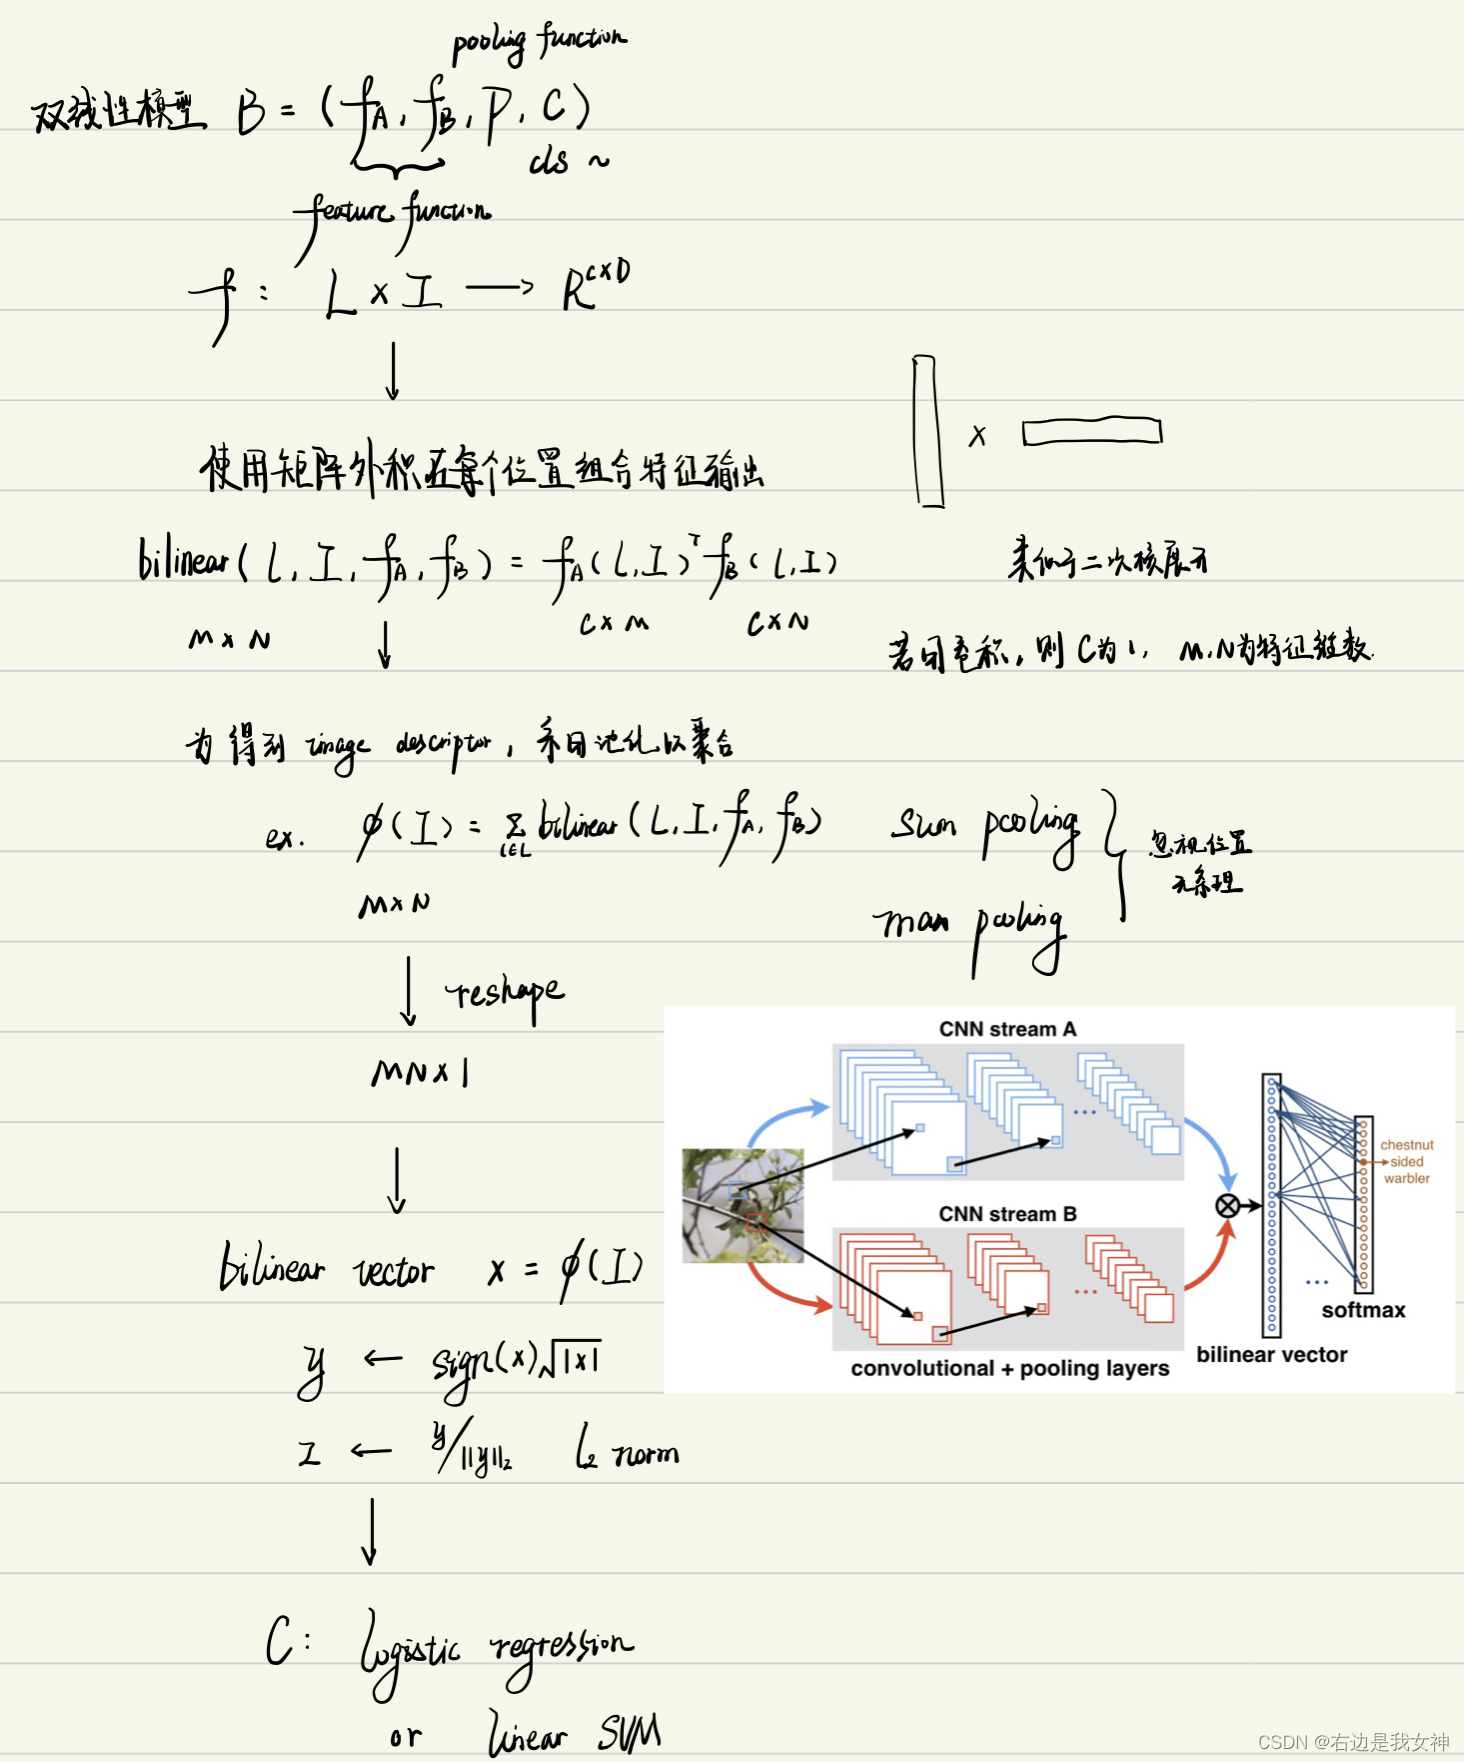 pooling function
双线性模型 B = (f_A, f_B, P, C)
cls ~
feature function
f : L × I → R^{c×D}
使用矩阵外积在每个位置组合特征输出
×
bilinear(l, I, f_A, f_B) = f_A(l, I)^T f_B(l, I)
类似于二次核展开
M × N
C × M
C × N
若用卷积,则C为1, M,N为特征维数.
为得到 image descriptor, 采用池化以聚合
ex. φ(I) = Σ_{l∈L} bilinear(L, I, f_A, f_B)
sum pooling
忽视位置
无条理
M × N
max pooling
reshape
MN × 1
CNN stream A
chestnut
sided
warbler
CNN stream B
bilinear vector x = φ(I)
softmax
bilinear vector
convolutional + pooling layers
y ← sign(x)√|x|
z ← y/||y||_2 l_2 norm
C: logistic regression
or linear SVM
CSDN @右边是我女神